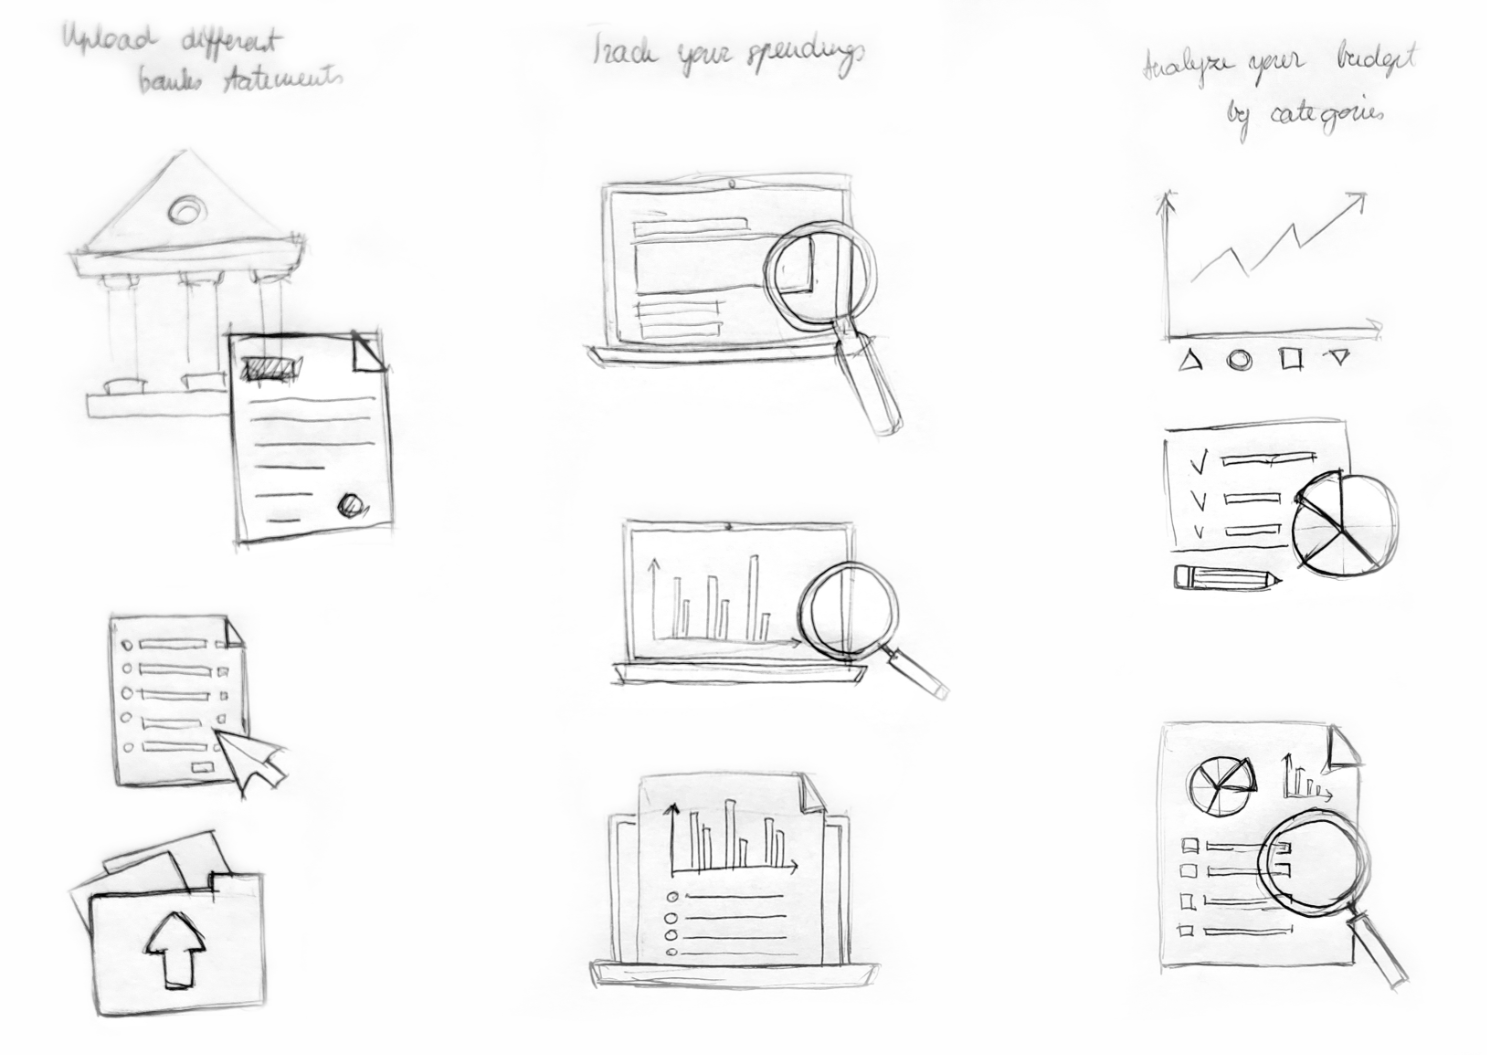 Upload different
banks statements
Track your spendings
Analyze your budget
by categories